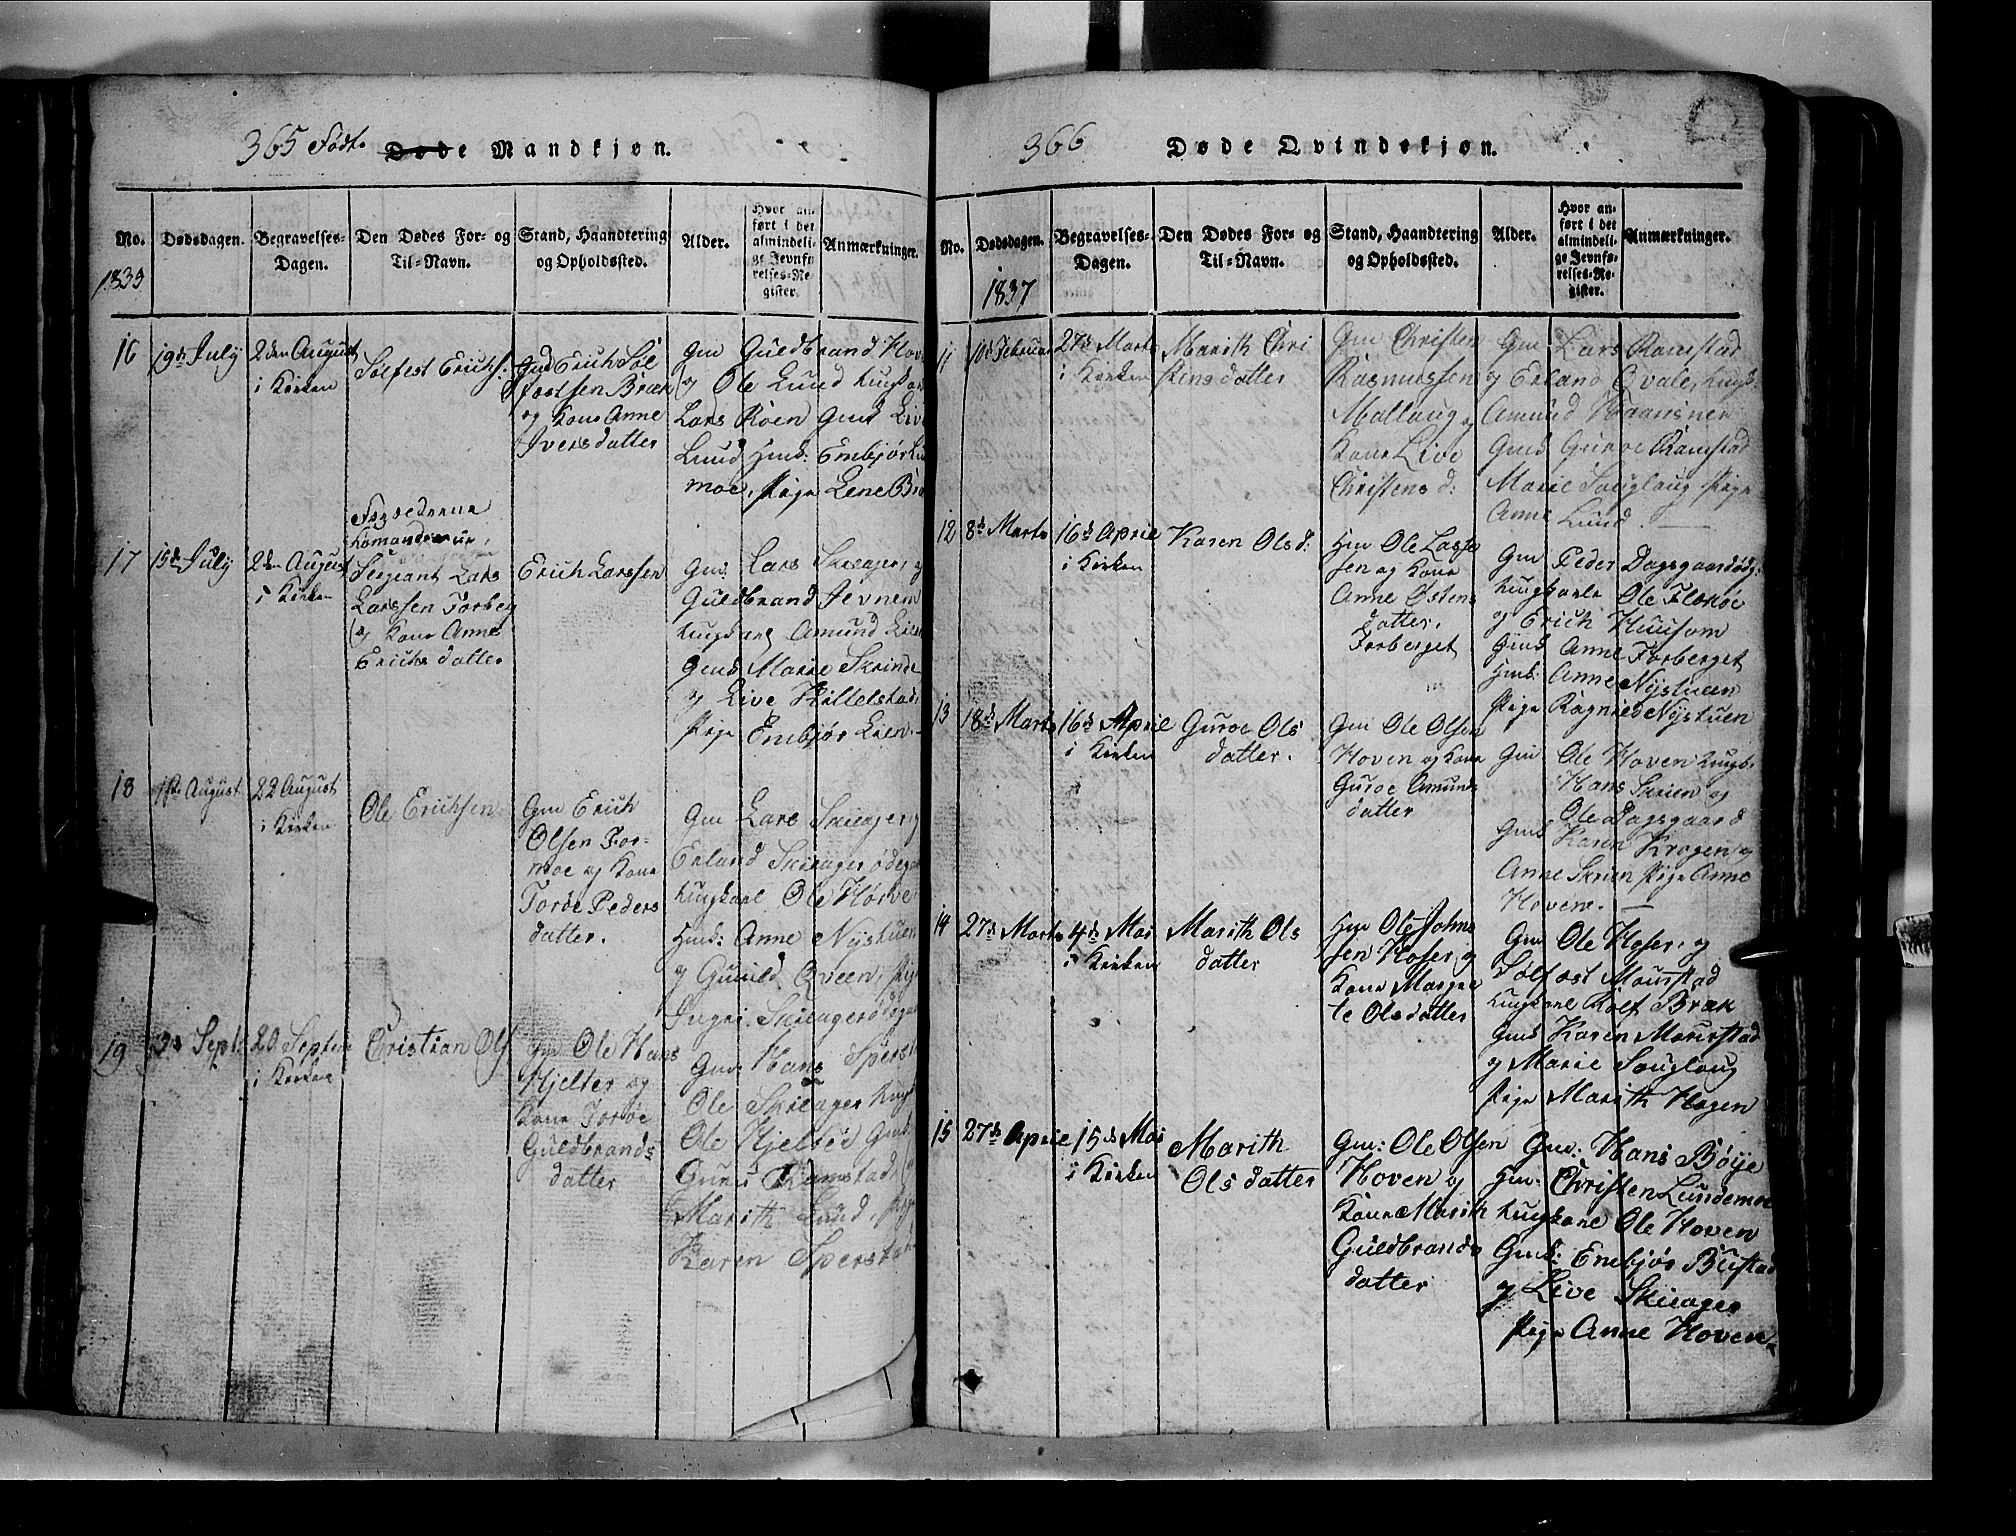 365 Födt.
Døde Mandkjøn.
No.
1839
Dødsdagen.
Begravelses-
Dagen.
Den Dødes For- og
Til-Navn.
Stand, Haandtering
og Opholdssted.
Alder.
Hvor an-
ført i det
almindeli-
ge Jevnfø-
relses-Re-
gister.
Anmærkninger.
16
19de July
2den August
i Kirken
Solfest Erichs.
Gmd Erich Sol
festsen Bræk
og Kone Anne
Ivers datter
Gm Guldbrand Hov
og Ole Lund Ungkar
Lars Röen Gmds Live
Lund Hmds: Embjör Lu
moe, Pige Lene Bræ
17
15de July
2den August
i Kirken
Sergeant Lars
Larssen Forberg
og Kone Anne
Erichs datter
Erich Larssen
Gm: Lars Skieager, og
Guldbrand Jevnem
Ungkarl Amund Lien
Gmds Marie Skrinde
og Live Hillelstad,
Pige Embjör Lien.
18
August
22 August
i Kirken
Ole Erichsen
Gm Erich
Olsen For-
moe og Kone
Torde Peders
datter.
Gm Lars Skieager og
Erland Skieager ödega
Ungkarl Ole Hörve
Hmds: Anne Nystuen
og Guuld Qveen, Pige
Ingri Skieagerödega
19
3de Septbr
20 Septem
i Kirken
Christian Ols
Gm Ole Hans
Hjelter og
Kone Toröe
Guldbrands-
datter
Gm Hans Sperst
Ole Skieager Ungk
Ole Hjeltöe Gmds
Guri Ramstad, og
Marith Lund, Pige
Karen Sperstad
366
Døde Qvindekjøn.
No.
Dødsdagen.
1837
Begravelses-
Dagen.
Den Dødes For- og
Til-Navn.
Stand, Haandtering
og Opholdssted.
Alder.
Hvor an-
ført i det
almindeli-
ge Jevnfø-
relses-Re-
gister.
Anmærkninger.
11
10de Februar
27de Marts
i Kirken
Marith Chri
stens datter
Gm Christen
Rasmussen
Mollaug og
Kone Live
Christens d:
Gm Lars Ramstad
og Erland Qvale, Ungk.
Amund Haansnes
Gmds Guroe Ramstad
Marie Souglaug Pige
Anne Lund.
12
8de Marts
16de Aprile
i Kirken
Karen Ols d:
Hm Ole Lasse
sen og Kone
Anne Östens
datter,
Forberget
Gm Peder Dagsgaardödg:
Ungkarle Ole Fleköe
og Erich Huusom
Gmds Anne Forberget
Hmds: Anne Nystuen
Pige Ragnild Nystuen
13
18de Marts
16de Aprile
i Kirken
Guroe Ols
datter.
Gm Ole Olsen
Hoven og Kone
Guroe Amunds
datter
Gm Ole Hoven Ungk.
Hans Skrien og
Ole Dagsgaard
Gmds Karen Krogen, og
Anne Skrien Pige Anne
Hoven.
14
27de Marts
4de Mai
i Kirken
Marith Ols
datter
Hm Ole Johne
sen Hoser, og
Kone Margre
te Olsdatter
Gm Ole Hoser, og
Solfæst Mourstad
Ungkarl Rolf Bræk
Gmds Karen Mourstad
og Marie Souglaug
Pige Marith Hagen
15
27de Aprile
15de Mai
i Kirken
Marith
Ols datter
Gm: Ole Olsen
Hoven og
Kone Marith
Guldbrands
datter
Gm: Hans Böye
Hm: Christen Lundemoe
Ungkarl Ole Hoven
Gmds: Embjör Bustad
og Live Skieager
Pige Anne Hoven.